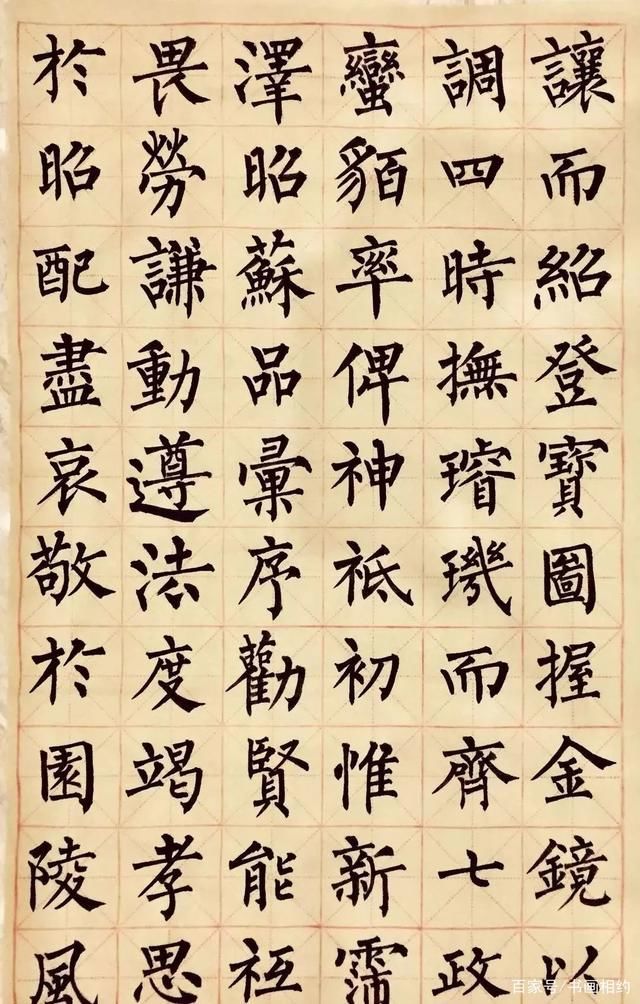 讓而紹登寶圖握金鏡以
調四時撫璿璣而齊七政
蠻貊率俾神祇初惟新霈
澤昭蘇品彙序勸賢能祗
畏勞謙動遵法度竭孝思
於昭配盡哀敬於園陵風
百家号/书画相约